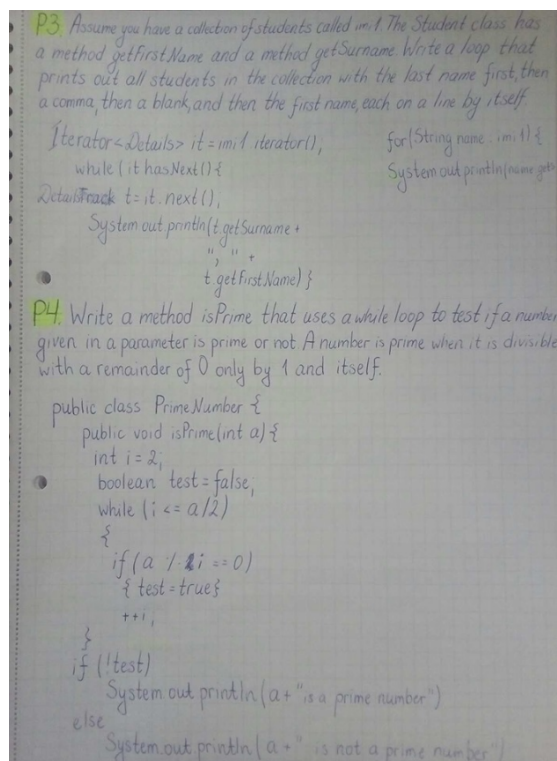 P3. Assume you have a collection of students called imi1. The Student class has
a method getFirstName and a method getSurname. Write a loop that
prints out all students in the collection with the last name first, then
a comma, then a blank, and then the first name, each on a line by itself.
Iterator<Details> it = imi1 iterator();
while (it hasNext() {
t = it.next();
System out println(t.getSurname +
", " +
t.getFirstName) }
for(String name : imi1) {
System out println(name get
P4. Write a method isPrime that uses a while loop to test if a number
given in a parameter is prime or not. A number is prime when it is divisible
with a remainder of 0 only by 1 and itself.
public class PrimeNumber {
public void isPrime(int a) {
int i = 2;
boolean test = false;
while (i <= a/2)
{
if (a % i == 0)
{ test = true }
++i;
}
if (!test)
System out println(a + "is a prime number")
else
System.out.println(a + " is not a prime number")